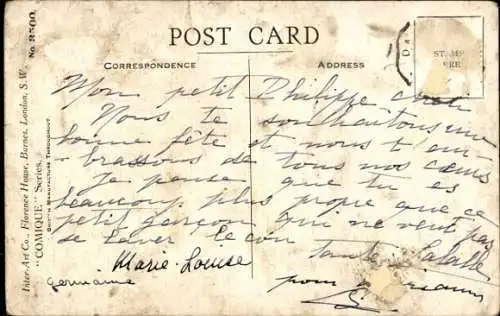 POST CARD
CORRESPONDENCE
ADDRESS
Mon petit Philippe
Nous te souhaitons une
bonne fête et nous t'em-
brassons de tous nos cœurs
Je pense que tu es
beaucoup plus propre que ce
petit garçon qui ne veut pas
se laver le cou
tante
Marie-Louise
Germaine
pour
Inter-Art Co., Florence House, Barnes, London, S.W.
"COMIQUE" Series.
BRITISH MANUFACTURE THROUGHOUT.
No. 2500